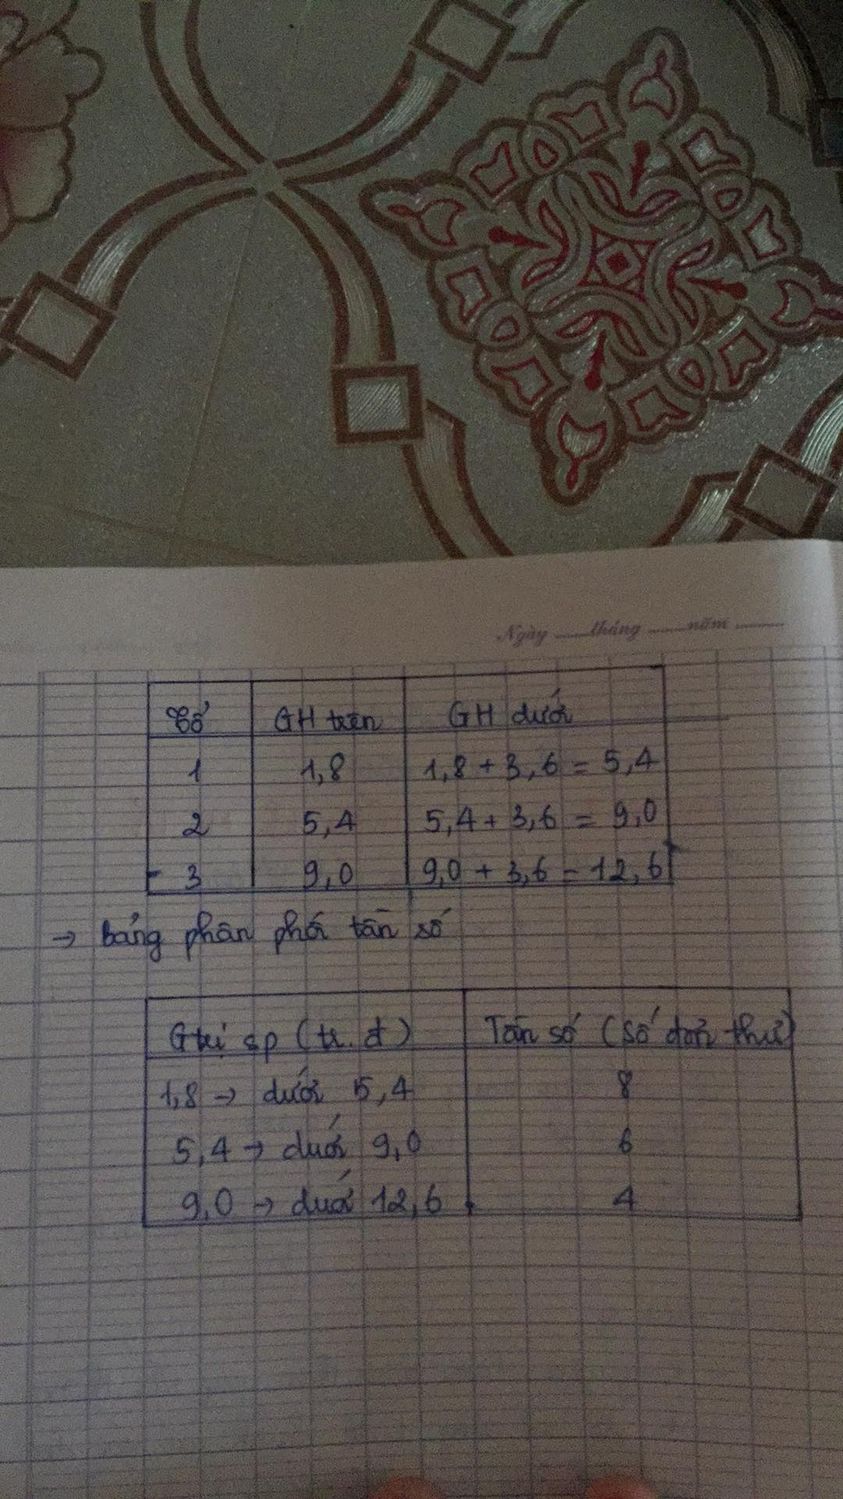 Ngày ......tháng ......năm ........
Tổ GH trên GH dưới
1 1,8 1,8 + 3,6 = 5,4
2 5,4 5,4 + 3,6 = 9,0
3 9,0 9,0 + 3,6 = 12,6
→ bảng phân phối tần số
Gtrị sp (tr.đ) Tần số (số đơn thư)
1,8 → dưới 5,4 8
5,4 → dưới 9,0 6
9,0 → dưới 12,6 4